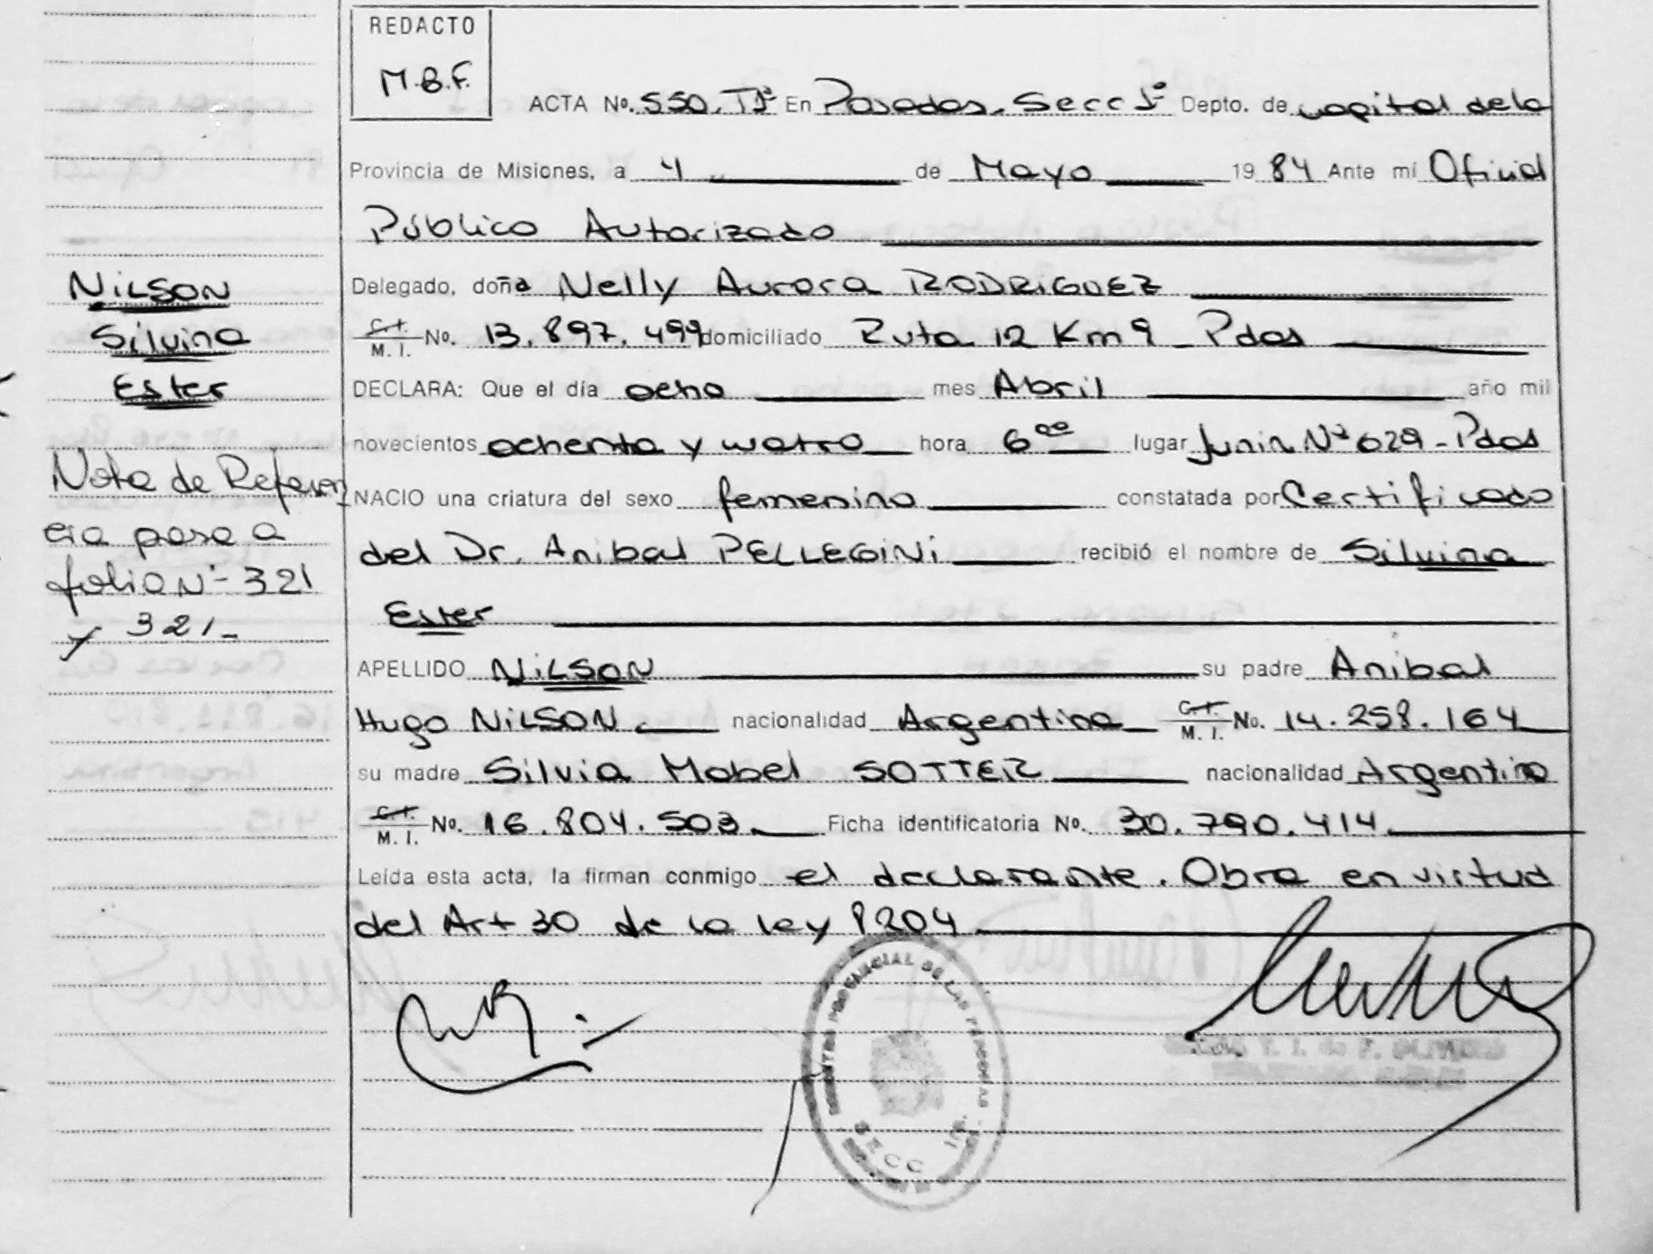 REDACTO
M.B.F.
ACTA No. 550. Tº1º En Posadas. Secc 1º Depto. de capital de la
Provincia de Misiones, a 4 de Mayo 1984 Ante mí Oficial
Público Autorizado
Delegado, doña Nelly Aurora RODRIGUEZ
C.I. M. I. No. 13.897.499 domiciliado Ruta 12 Km 9 - Pdas
DECLARA: Que el día ocho mes Abril año mil
novecientos ochenta y cuatro hora 6 oo lugar Junin Nº 629 - Pdas
NACIO una criatura del sexo femenino constatada por Certificado
del Dr. Anibal PELLEGiNi recibió el nombre de Silvina
Ester
APELLIDO NiLSON su padre Anibal
Hugo NiLSON nacionalidad Argentina C.I. M. I. No. 14.258.164
su madre Silvia Mabel SOTTER nacionalidad Argentina
C.I. M. I. No. 16.804.503 Ficha identificatoria No. 30.790.414
Leída esta acta, la firman conmigo el declarante. Obra en virtud
del Art 30 de la ley 8204
NiLSON
Silvina
Ester
Nota de Referen
cia pasa a
folio Nº 321
y 321-
REGISTRO PROVINCIAL DE LAS PERSONAS
SECC 1ra.